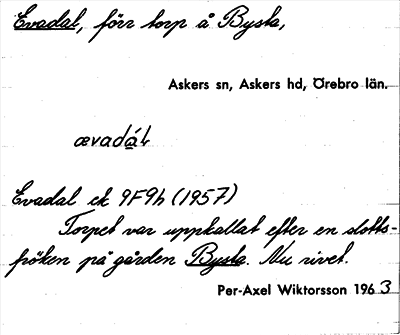 Evadal, förr torp å Bysta,
Askers sn, Askers hd, Örebro län.
ævadáɫ
Evadal ek 9F9h (1957)
Torpet var uppkallat efter en slotts-
fröken på gården Bysta. Nu rivet.
Per-Axel Wiktorsson 1963